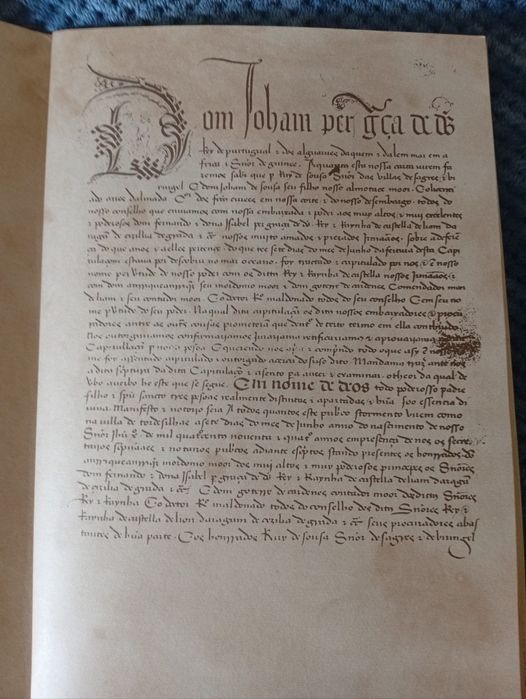 Dom Joham per g̃ça de ds̃
Rey de purtugual & dos alguarues daquem & dalem mar em a
frica & Sñor de guinee. A quantos esta nossa carta uirem fa
zemos saber que p Ruy de sousa Sñor das uillas de sagres & bi
ringel E dom Joham de sousa seu filho nosso almotace moor. E o
ado aires dalmada em nossa corte & do nosso desembargo. todos do
nosso conselho que enuiamos com nossa embaixada & poder aos muy altos & muy excelentes
& poderosos dom fernando & dona Isabel per graça de ds̃ Rey & Raynha de castella de liam da
ragã de cezilia de grada & cẽ nossos muyto amados & prezados Jrmaãos. sobre a deferẽ
ça do que a nos & a elles pertence do que ate sete dias do mes de Junho da feitura desta Capi
tulaçam estaua por descobrir no mar oceano. foy trautado & capitulado por nos & em nosso
nome per uirtude do nosso poder com os dittos Rey & Raynha de castella nossos Jrmaãos &
com dom anrrique anrriquez seu moordomo moor & dom goterre de cardenes Comendador moor
de liam & seu contador moor. E o doctor Rº maldonado todos do seu conselho E em seu no
me p uirtude do seu poder. Na qual ditta capitulaçã os dittos nossos embaixadores & procu
radores antre as outras cousas prometerã que dentº de certo termo em ella contheudo
Nos outorguariamos confirmariamos Jurariamos retificariamos & aprouariamos
Capitulaçam p nossa pesoa E querendo nos comprindo todo o que asy em nosso
me foy assentado capitulado & outorgado acerca do suso dito. Mandamos trazer ante nos
a ditta sc̃ptura da ditta Capitulaçã & asento pa a ueer & examinar. o theor da qual de
uerbo a uerbo he este que se segue. Em nome de deos todo poderoso padre
filho & sp̃u sancto tres pesoas realmente distintas & apartadas & hũa soo essencia di
uina. Manifesto & notorio seia A todos quantos este publico stormento uirem como
na uilla de tordesilhas a sete dias do mes de Junho anno do nascimento de nosso
Sñor Jhũ xº de mil quatrocentos nouenta & quatº annos em presença de nos os secre
tarios & notarios publicos adiante esc̃ptos stando presentes os honrrados dõ
anrrique anrriquez moordomo moor dos mui altos & muy poderosos principes os Sñores
dom fernando & dona Isabel p graça de ds̃ Rey & Raynha de castella de liam daragã
de cezilia de grada & cẽ E dom goterre de cardenes contador moor dos dittos Sñores
Rey & Raynha E o doctor Rº maldonado todos do conselho dos dittos Sñores Rey &
Raynha de castella de liom daragam de cezilia de grada & cẽ seus procuradores abas
tantes de hũa parte. E os honrrados Ruy de sousa Sñor de sagres & de biringel